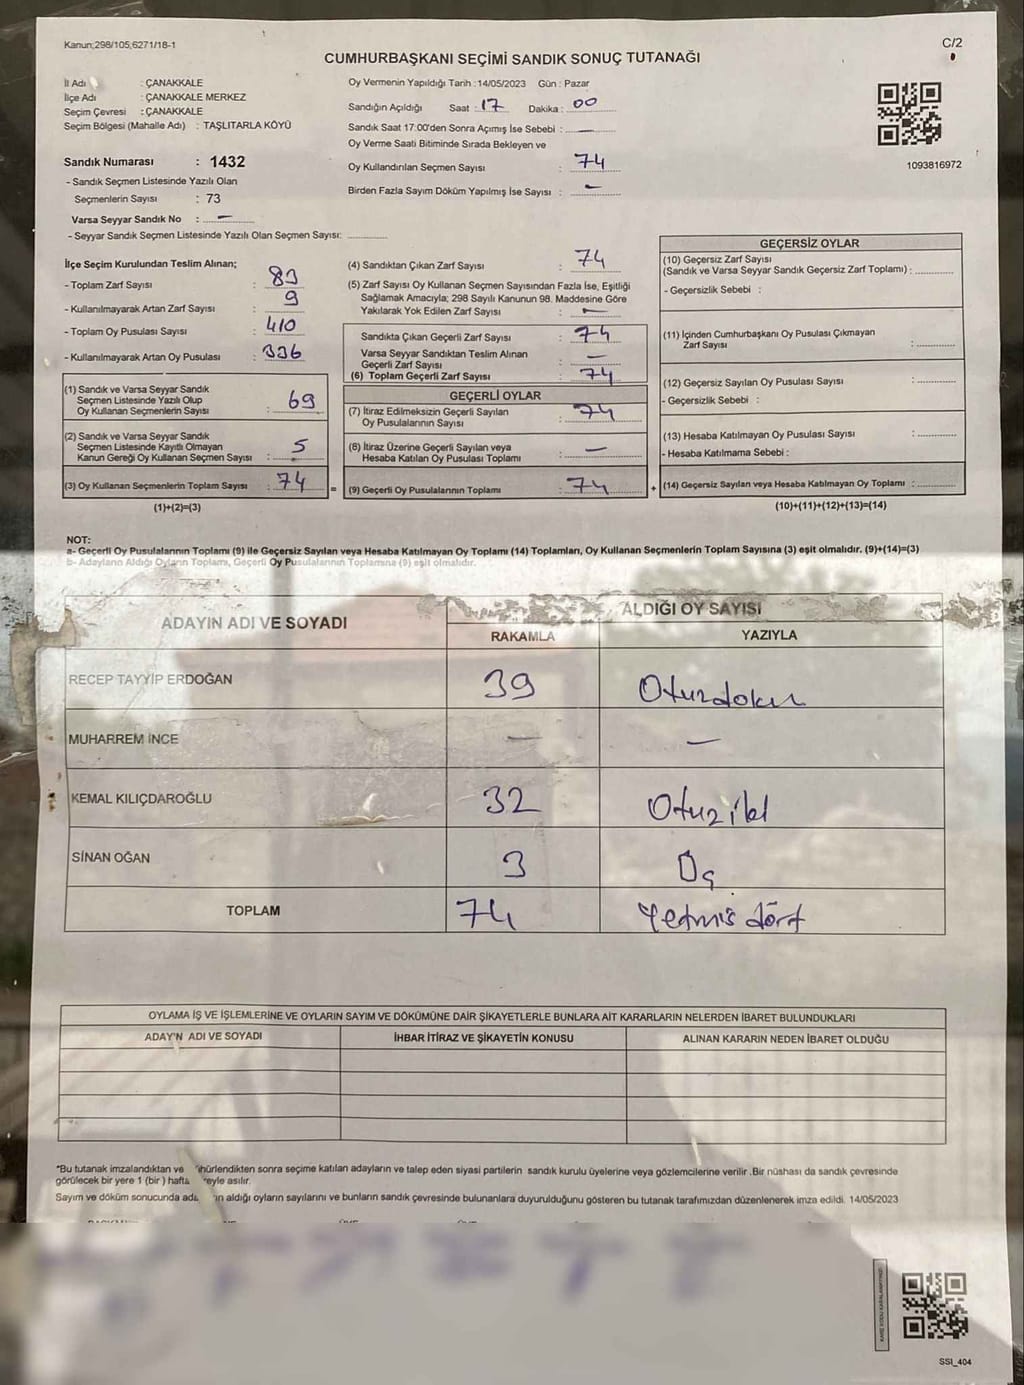 Kanun;298/105;6271/18-1
C/2
CUMHURBAŞKANI SEÇİMİ SANDIK SONUÇ TUTANAĞI
İl Adı : ÇANAKKALE
İlçe Adı : ÇANAKKALE MERKEZ
Seçim Çevresi : ÇANAKKALE
Seçim Bölgesi (Mahalle Adı) : TAŞLITARLA KÖYÜ
Sandık Numarası : 1432
- Sandık Seçmen Listesinde Yazılı Olan
Seçmenlerin Sayısı : 73
Varsa Seyyar Sandık No : —
- Seyyar Sandık Seçmen Listesinde Yazılı Olan Seçmen Sayısı: ............
Oy Vermenin Yapıldığı Tarih : 14/05/2023 Gün : Pazar
Sandığın Açıldığı Saat : 17 Dakika : 00
Sandık Saat 17:00'den Sonra Açımış İse Sebebi : —
Oy Verme Saati Bitiminde Sırada Bekleyen ve
Oy Kullandırılan Seçmen Sayısı : 74
Birden Fazla Sayım Döküm Yapılmış İse Sayısı : —
1093816972
İlçe Seçim Kurulundan Teslim Alınan;
- Toplam Zarf Sayısı : 83
- Kullanılmayarak Artan Zarf Sayısı : 9
- Toplam Oy Pusulası Sayısı : 410
- Kullanılmayarak Artan Oy Pusulası : 336
(1) Sandık ve Varsa Seyyar Sandık
Seçmen Listesinde Yazılı Olup
Oy Kullanan Seçmenlerin Sayısı : 69
(2) Sandık ve Varsa Seyyar Sandık
Seçmen Listesinde Kayıtlı Olmayan
Kanun Gereği Oy Kullanan Seçmen Sayısı : 5
(3) Oy Kullanan Seçmenlerin Toplam Sayısı : 74
(1)+(2)=(3)
(4) Sandıktan Çıkan Zarf Sayısı : 74
(5) Zarf Sayısı Oy Kullanan Seçmen Sayısından Fazla İse, Eşitliği
Sağlamak Amacıyla; 298 Sayılı Kanunun 98. Maddesine Göre
Yakılarak Yok Edilen Zarf Sayısı : —
Sandıkta Çıkan Geçerli Zarf Sayısı : 74
Varsa Seyyar Sandıktan Teslim Alınan
Geçerli Zarf Sayısı : —
(6) Toplam Geçerli Zarf Sayısı : 74
GEÇERLİ OYLAR
(7) İtiraz Edilmeksizin Geçerli Sayılan
Oy Pusulalarının Sayısı : 74
(8) İtiraz Üzerine Geçerli Sayılan veya
Hesaba Katılan Oy Pusulası Toplamı : —
= (9) Geçerli Oy Pusulalarının Toplamı : 74 +
GEÇERSİZ OYLAR
(10) Geçersiz Zarf Sayısı
(Sandık ve Varsa Seyyar Sandık Geçersiz Zarf Toplamı) : ............
- Geçersizlik Sebebi :
(11) İçinden Cumhurbaşkanı Oy Pusulası Çıkmayan
Zarf Sayısı : ............
(12) Geçersiz Sayılan Oy Pusulası Sayısı : ............
- Geçersizlik Sebebi :
(13) Hesaba Katılmayan Oy Pusulası Sayısı : ............
- Hesaba Katılmama Sebebi :
(14) Geçersiz Sayılan veya Hesaba Katılmayan Oy Toplamı : ............
(10)+(11)+(12)+(13)=(14)
NOT:
a- Geçerli Oy Pusulalarının Toplamı (9) ile Geçersiz Sayılan veya Hesaba Katılmayan Oy Toplamı (14) Toplamları, Oy Kullanan Seçmenlerin Toplam Sayısına (3) eşit olmalıdır. (9)+(14)=(3)
b- Adayların Aldığı Oyların Toplamı, Geçerli Oy Pusulalarının Toplamına (9) eşit olmalıdır.
ADAYIN ADI VE SOYADI
ALDIĞI OY SAYISI
RAKAMLA YAZIYLA
RECEP TAYYİP ERDOĞAN 39 Otuzdokuz
MUHARREM İNCE — —
KEMAL KILIÇDAROĞLU 32 Otuz iki
SİNAN OĞAN 3 Üç
TOPLAM 74 Yetmiş dört
OYLAMA İŞ VE İŞLEMLERİNE VE OYLARIN SAYIM VE DÖKÜMÜNE DAİR ŞİKAYETLERLE BUNLARA AİT KARARLARIN NELERDEN İBARET BULUNDUKLARI
ADAY'N ADI VE SOYADI İHBAR İTİRAZ VE ŞİKAYETİN KONUSU ALINAN KARARIN NEDEN İBARET OLDUĞU
*Bu tutanak imzalandıktan ve ühürlendikten sonra seçime katılan adayların ve talep eden siyasi partilerin sandık kurulu üyelerine veya gözlemcilerine verilir .Bir nüshası da sandık çevresinde
görülecek bir yere 1 (bir ) hafta reyle asılır.
Sayım ve döküm sonucunda ada ın aldığı oyların sayılarını ve bunların sandık çevresinde bulunanlara duyurulduğunu gösteren bu tutanak tarafımızdan düzenlenerek imza edildi. 14/05/2023
SSI_404